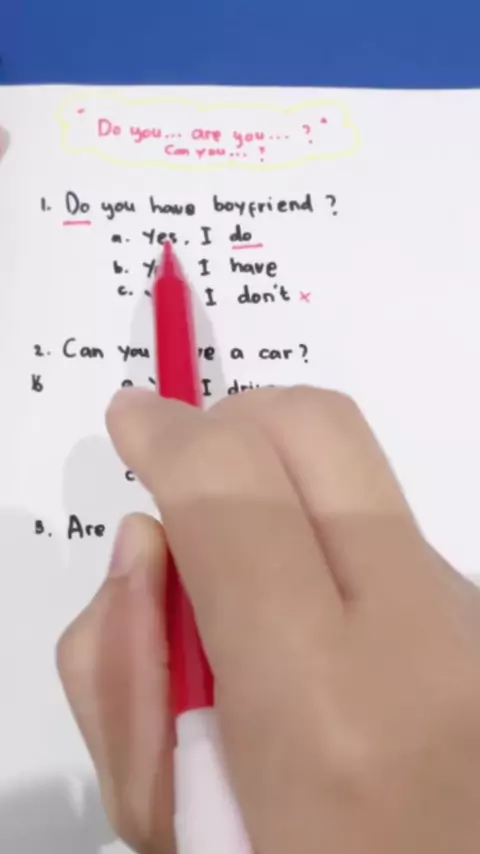 " Do you... are you... ? "
Can you... ?
1. Do you have boyfriend ?
a. Yes, I do
b. I have
c. I don't x
2. Can you a car?
a. I
c
3. Are